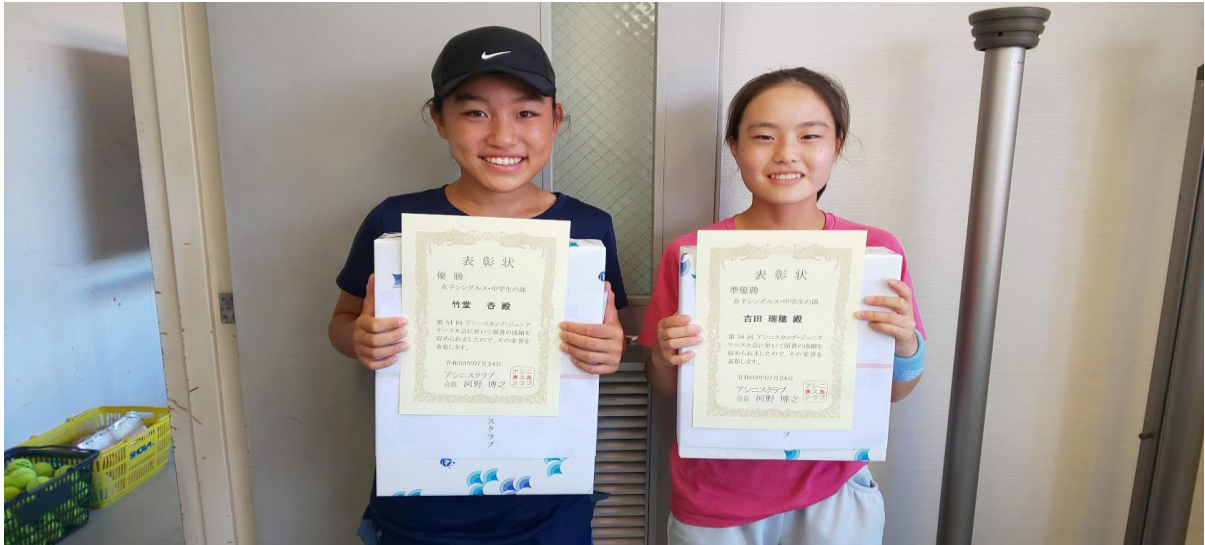 表彰状
優勝
女子シングルス・中学生の部
竹堂 杏 殿
第54回 アシニスカップ・ジュニア
テニス大会に於いて頭書の成績を
収められましたので、その栄誉を
表彰します。
令和03年07月24日
アシニスクラブ
会長 河野 博之
スクラブ
表彰状
準優勝
女子シングルス・中学生の部
吉田 瑞穂 殿
第54回 アシニスカップ・ジュニア
テニス大会に於いて頭書の成績を
収められましたので、その栄誉を
表彰します。
令和03年07月24日
アシニスクラブ
会長 河野 博之
ブ
SHOWA